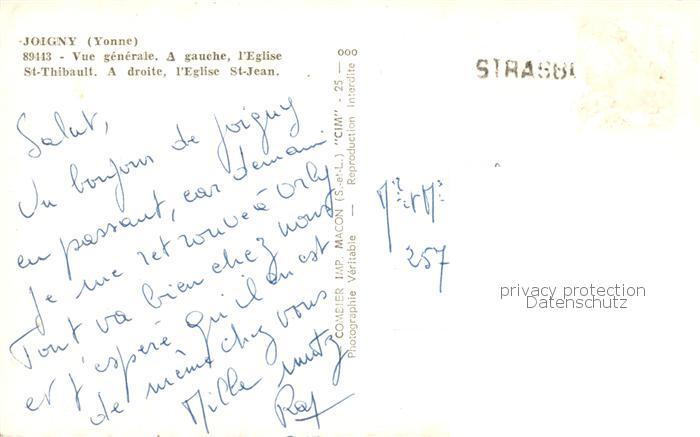 JOIGNY (Yonne)
89443 - Vue générale. A gauche, l'Eglise
St-Thibault. A droite, l'Eglise St-Jean.
Salut,
Un bonjour de Joigny
en passant, car demain
je me retrouve à Orly
Tout va bien chez nous
et j'espère qu'il en est
de même chez vous
Mille
COMBIER IMP. MACON (S.-et-L.) "CIM" - 25 — 000
Photographie Véritable — Reproduction Interdite
STRASBO
Mr et Me
257
privacy protection
Datenschutz